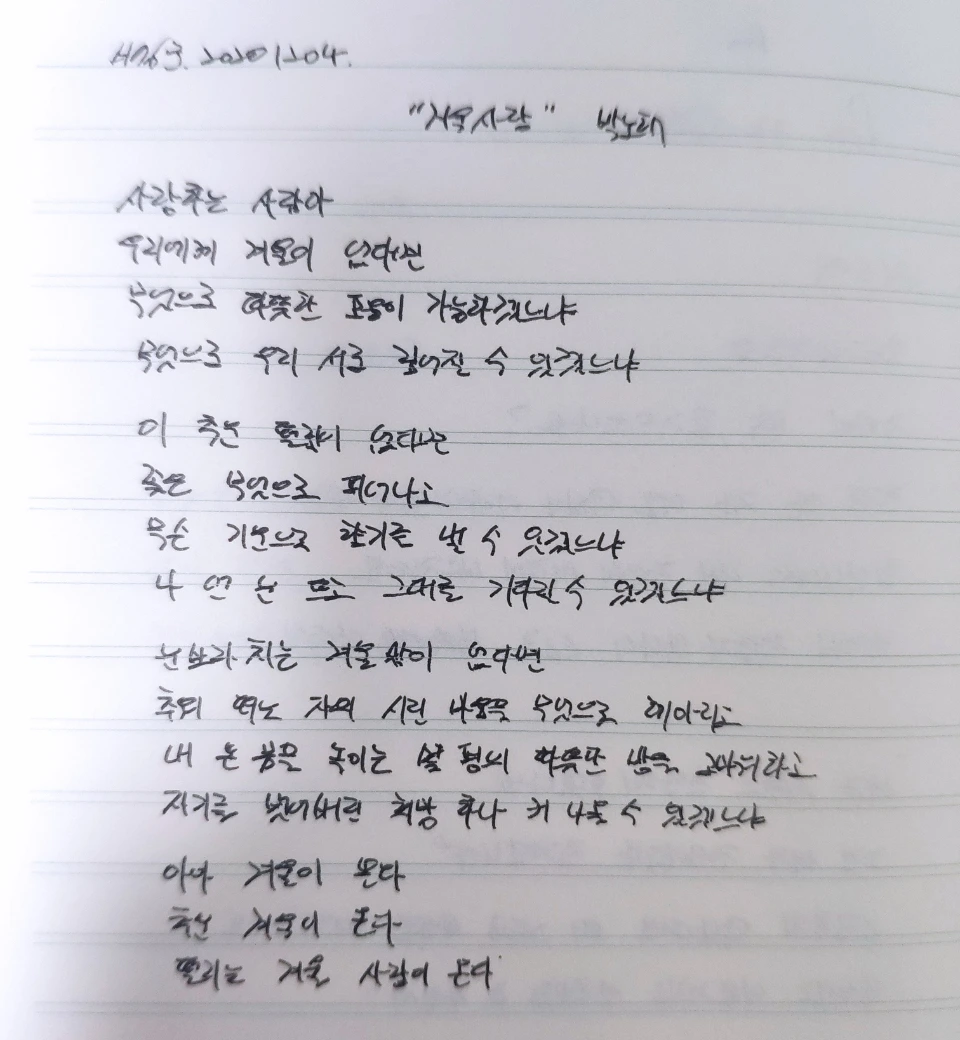 20201204.
"겨울사랑" 박노해
사랑하는 사람아
우리에게 겨울이 없다면
무엇으로 따뜻한 포옹이 가능하겠느냐
무엇으로 우리 서로 깊어질 수 있겠느냐
이 추운 떨림이 없다면
꽃은 무엇으로 피어나고
무슨 기운으로 향기를 낼 수 있겠느냐
나 언 눈 뜨고 그대를 기다릴 수 있겠느냐
눈보라 치는 겨울밤이 없다면
추워 떠는 자의 시린 마음을 무엇으로 헤아리고
내 온 몸을 녹이는 몇 평의 따뜻한 방을 고마워하고
자기를 벗어버린 희망 하나 커 나올 수 있겠느냐
아아 겨울이 온다
추운 겨울이 온다
떨리는 겨울 사랑이 온다